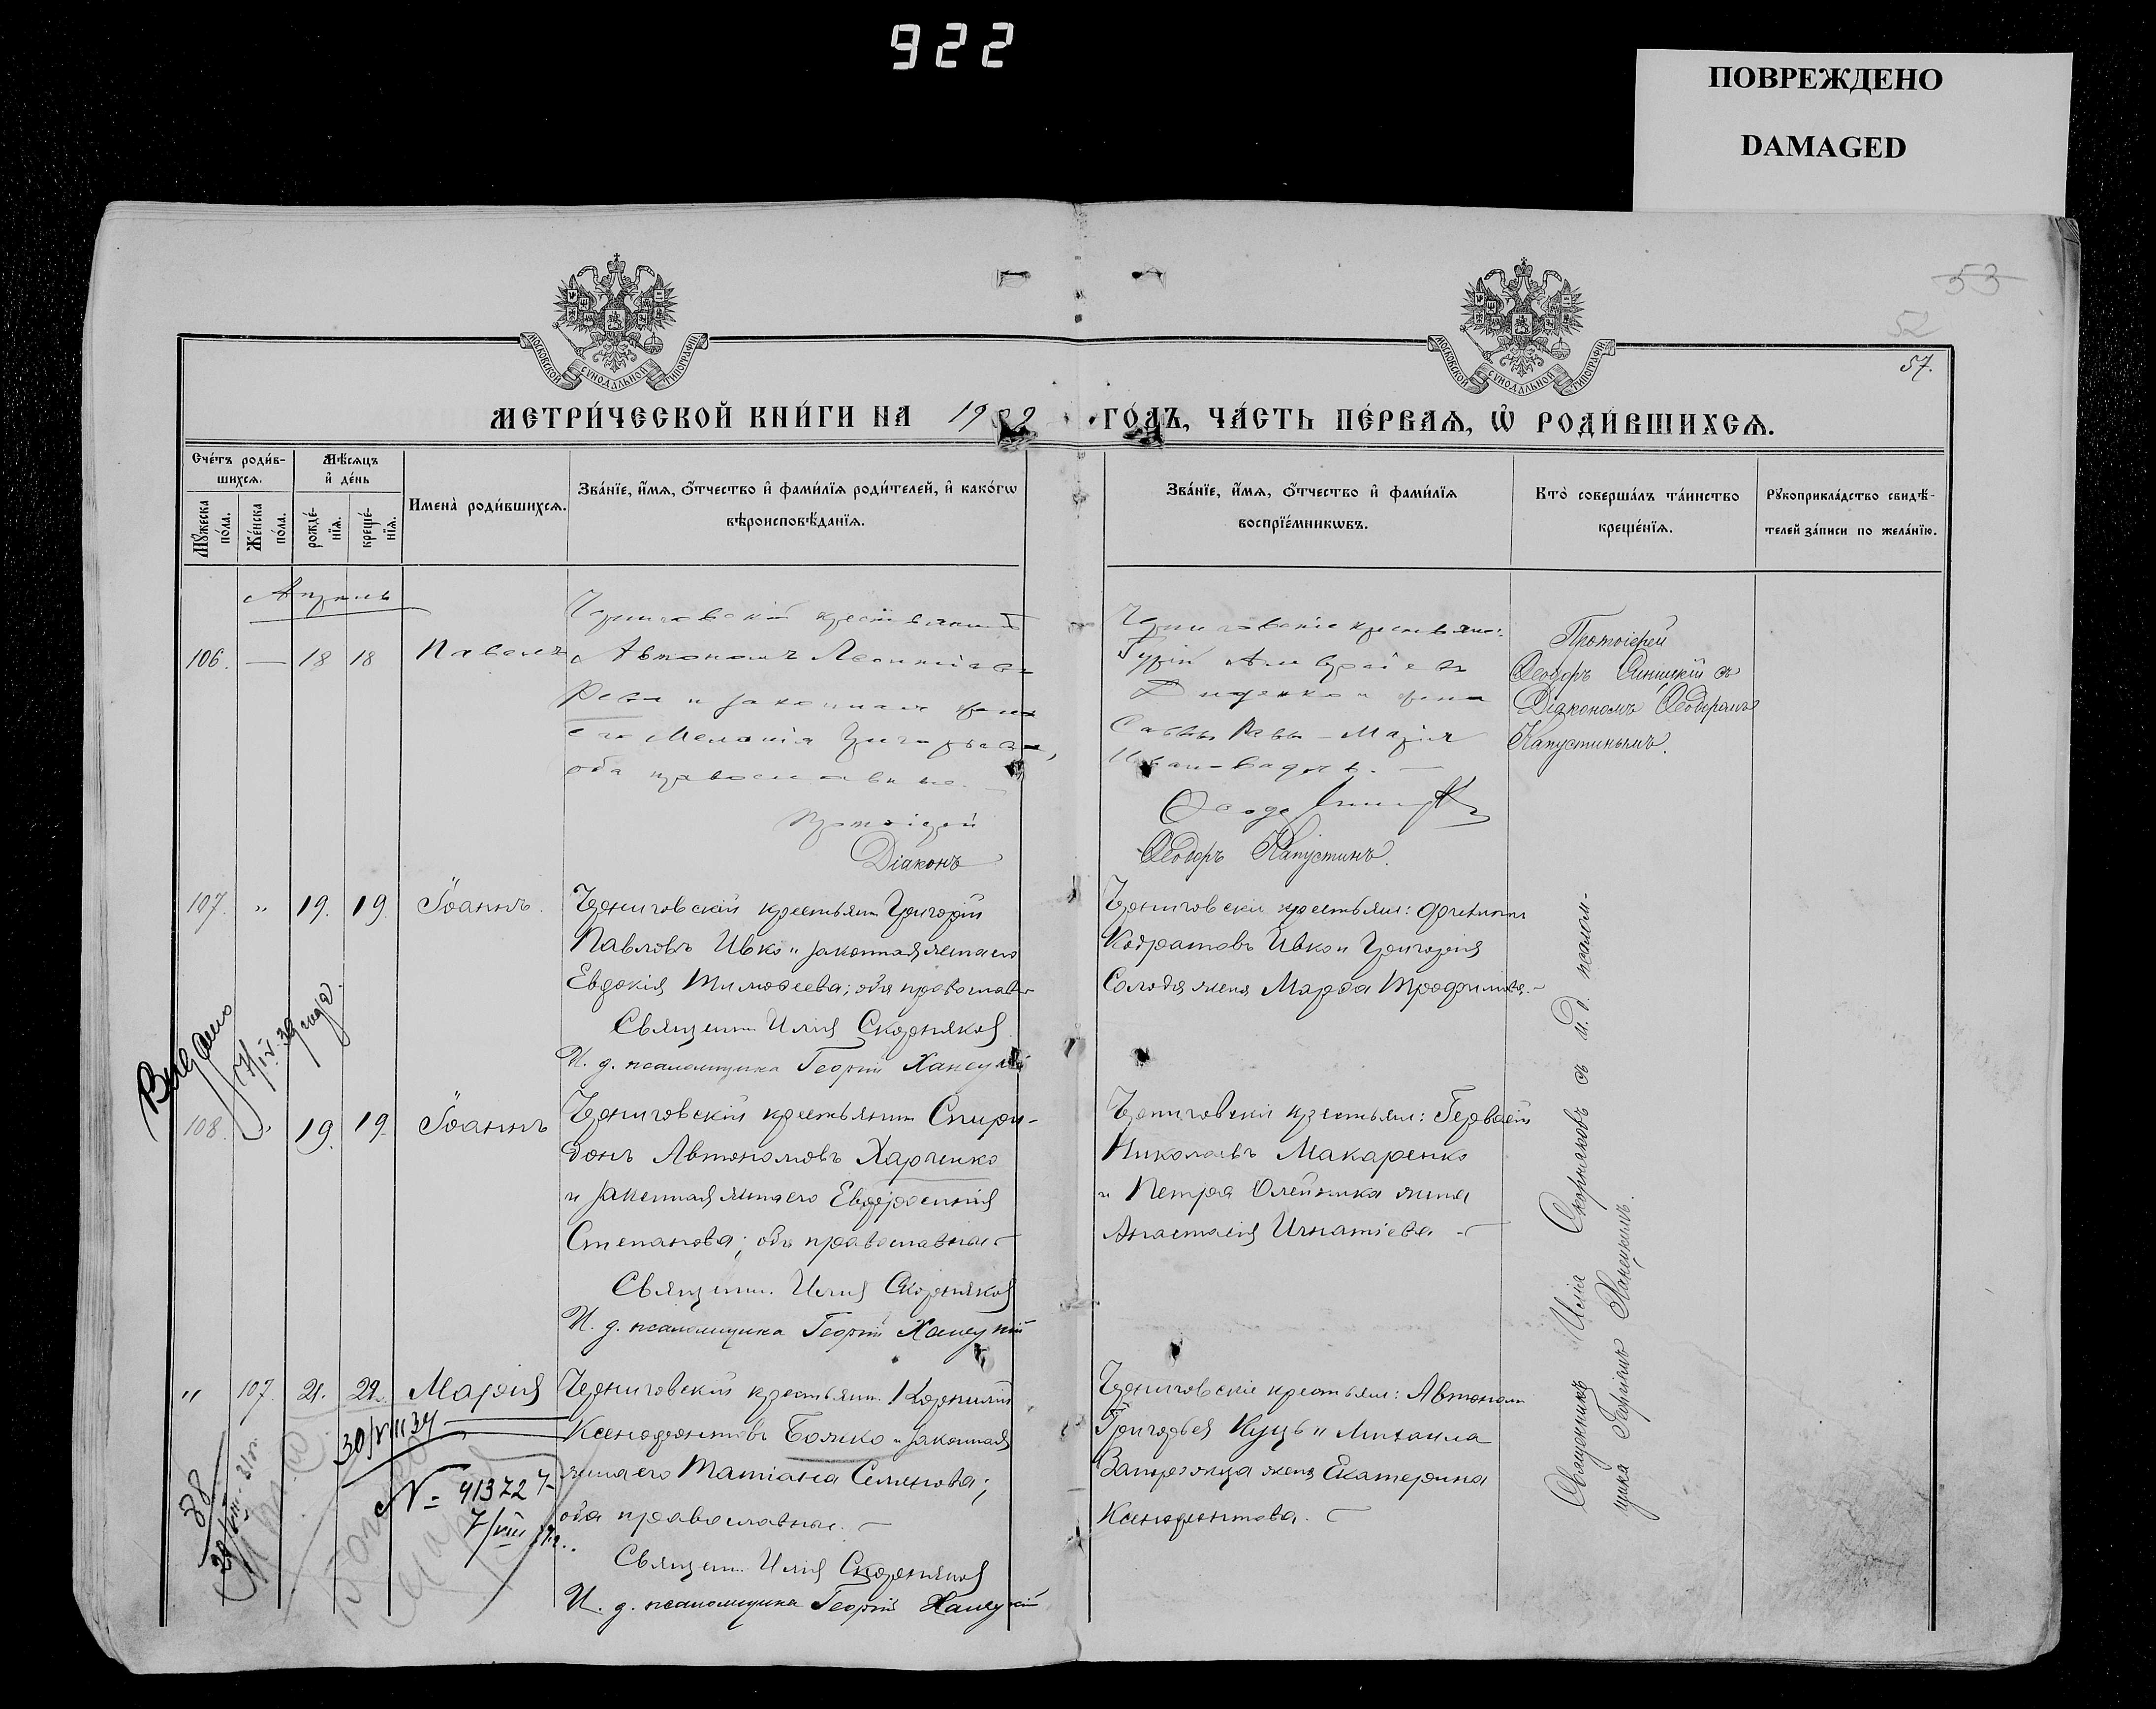 922
ПОВРЕЖДЕНО
DAMAGED
53
52
57.
МОСКОВСКОЙ СѴНОДАЛЬНОЙ ТИПОГРАФІИ
МОСКОВСКОЙ СѴНОДАЛЬНОЙ ТИПОГРАФІИ
МЕТРИ́ЧЕСКОЙ КНИ́ГИ НА 19
ГО́ДЪ, ЧА́СТЬ ПЕ́РВАѦ, Ѡ҆ РОДИ́ВШИХСѦ.
Сче́тъ роди́в-
шихсѧ.
Мꙋ́жеска по́ла.
Же́нска по́ла.
Мѣ́сѧцъ
и҆ де́нь
рожде́-
нїѧ.
креще́-
нїѧ.
Имена̀ роди́вшихсѧ.
Зва́нїе, и҆́мѧ, о҆́тчество и҆ фами́лїѧ роди́телей, и҆ како́гѡ
вѣроисповѣ́данїѧ.
Зва́нїе, и҆́мѧ, о҆́тчество и҆ фами́лїѧ
воспрїе́мникѡвъ.
Кто̀ соверша́лъ та́инство
креще́нїѧ.
Рꙋкоприкла́дство свидѣ́-
телей за́писи по жела́нїю.
Апрель
106. — 18 18 Павелъ
Черниговскій крестьянинъ
Автономъ Леонтіевъ
Рева и законная жена
его Меланія Григорьева,
оба православные.
Протоіерей
Діаконъ
Черниговскіе крестьяне:
Гурій
Диденко и жена
Саввы Ревы - Марія
Ѳеодоръ Капустинъ.
Протоіерей
Ѳеодоръ Синицкій съ
Діакономъ Ѳеодоромъ
Капустинымъ.
107. " 19. 19. Іоаннъ.
Черниговскій крестьянин Григорій
Павловъ Ивко и законная жена его
Евдокія Тимоѳеева; оба православн
Священ. Илія Скорняков
И. д. псаломщика Георгій Ханецкій
Черниговскіе крестьян:
Кодратовъ Ивко и Григорія
Солодя жена Марѳа Трофимова.
Выдано
7/IV. 39 года.
108. " 19. 19. Іоаннъ
Черниговскій крестьянин Спири-
донъ Автономовъ Харченко
и законная жена его Евфросинія
Степанова; оба православные
Священ. Илія Скорняков
И. д. псаломщика Георгій Ханецкій
Черниговскіе крестьян: Гервасій
Николаевъ Макаренко
и Петра Олейника жена
Анастасія Игнатіева
" 107. 21. 22. Марія
Черниговскій крестьянин. Корнилій
Ксенофонтовъ Божко и законная
жена его Татіана Семенова;
оба православные.
Священ. Илія Скорняков
И. д. псаломщика Георгій Ханецкій
Черниговскіе крестьян: Автоном
Григорьев Куць и Михаила
Запорожца жена Екатерина
Ксенофонтова.
Священникъ Илія Скорняковъ съ и. д. псалом-
щика Георгіемъ Ханецкимъ.
88
№ 41372
7/VIII